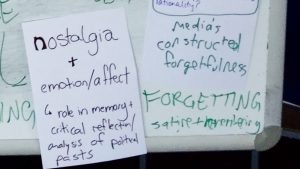 nostalgia
+
emotion/affect
↳ role in memory +
critical reflection/
analysis of political
pasts
rationality?
media's
constructed
forgetfulness
FORGETTING
satire + remembering
ING